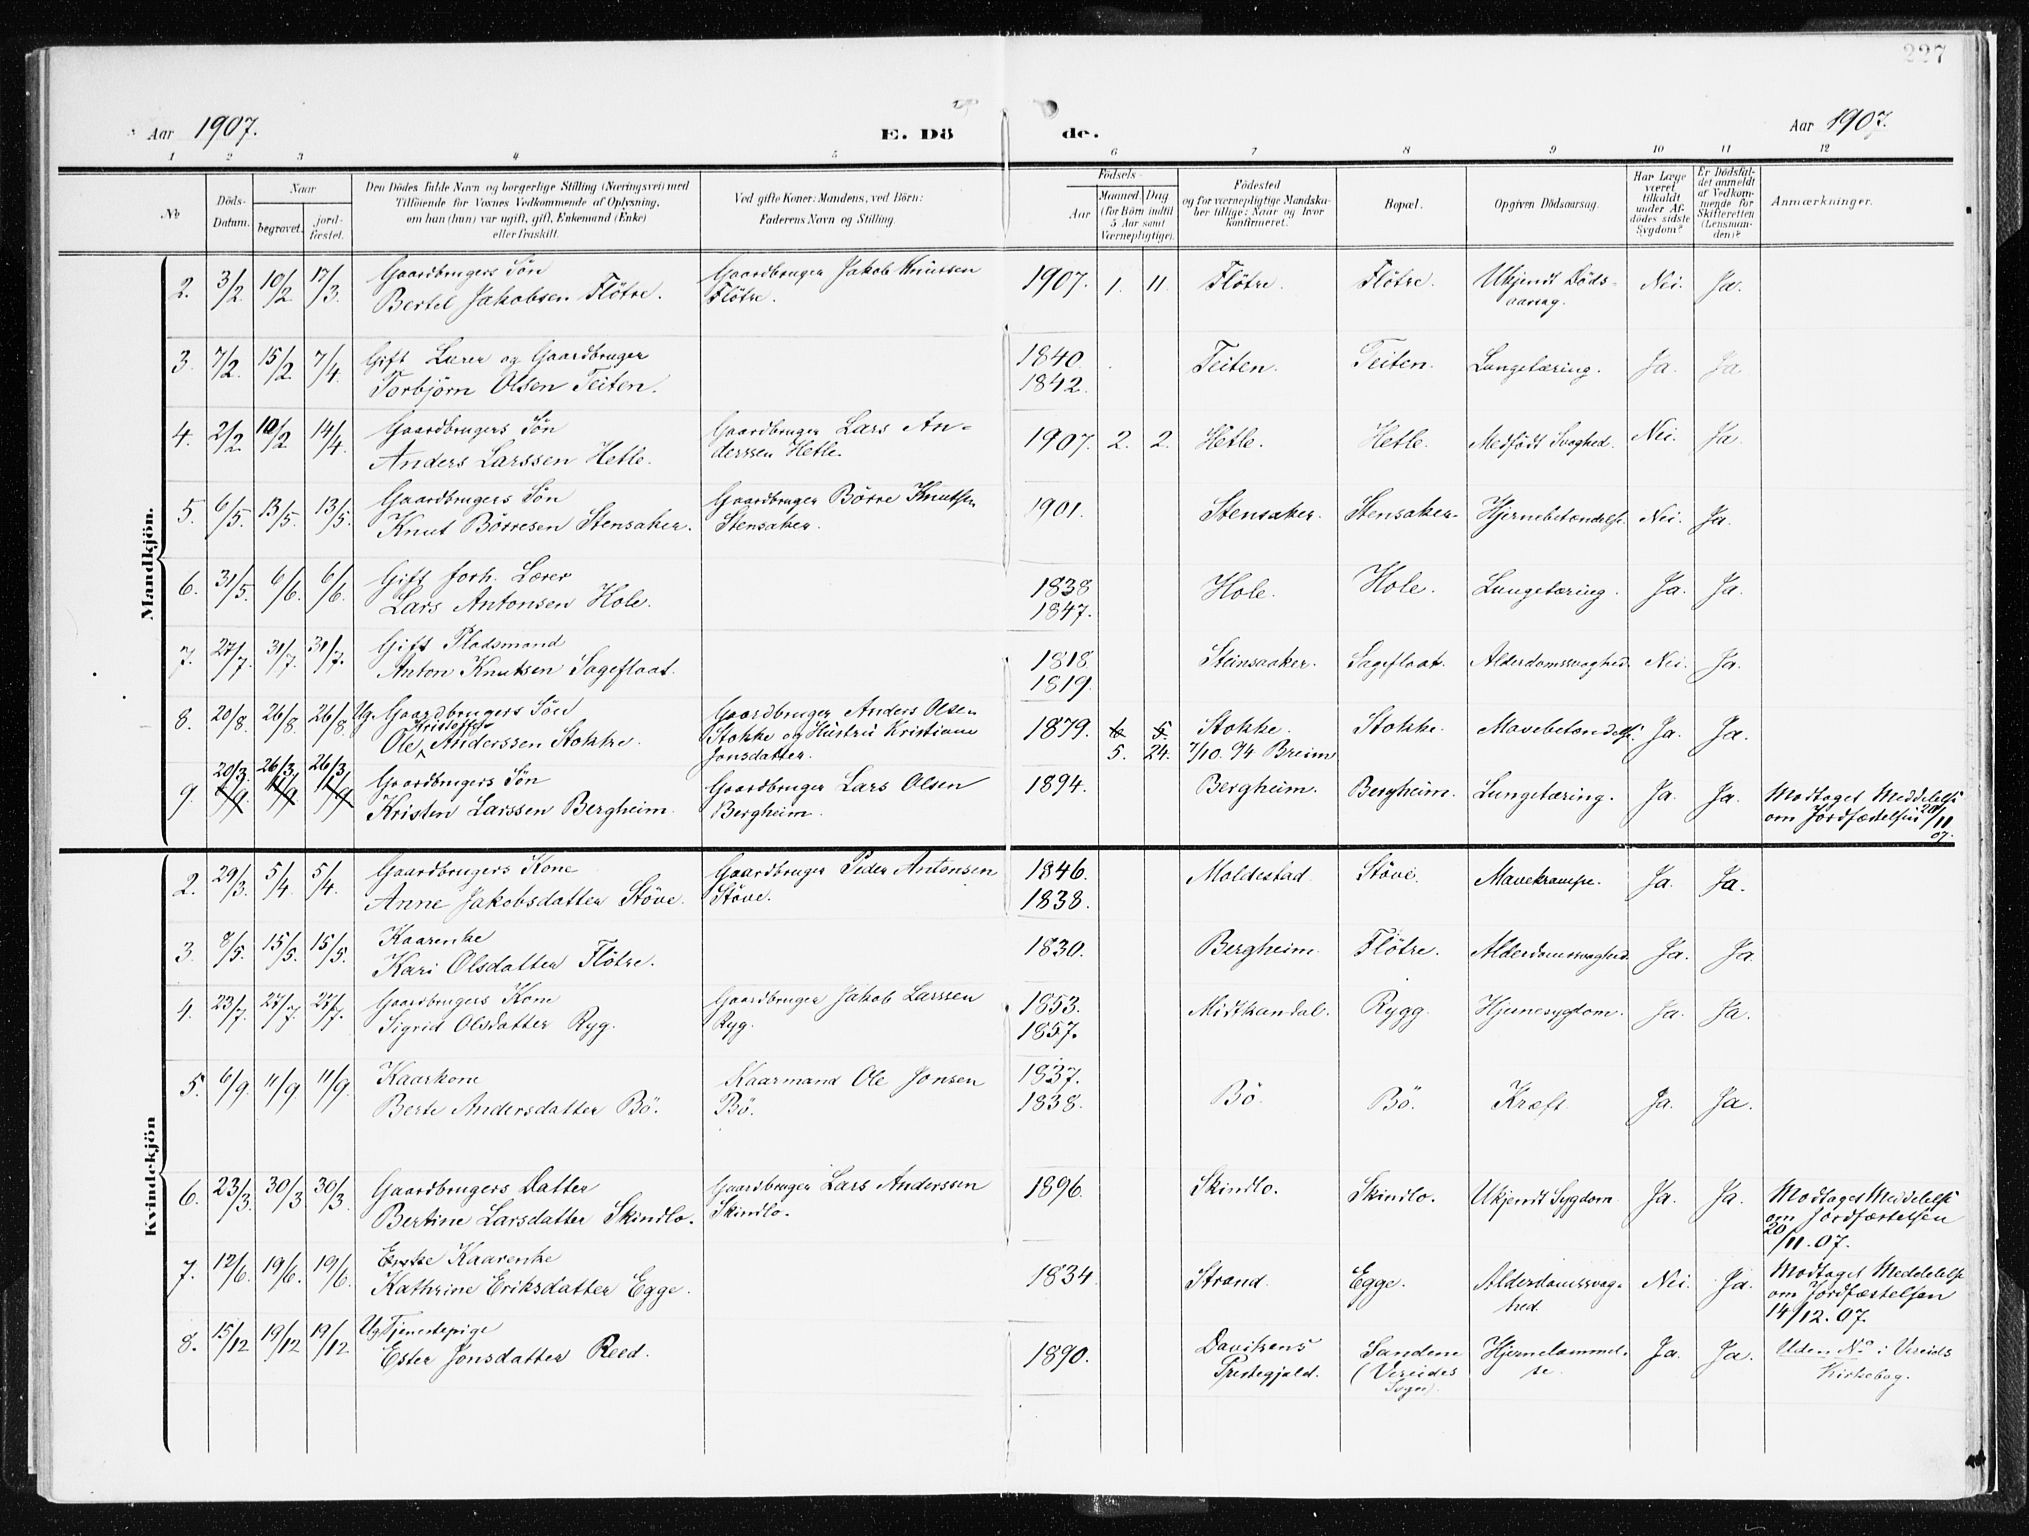 227
Aar 1907.
E. Dö de.
Aar 1907.
1 2 3 4 5 6 7 8 9 10 11 12
No
Döds-Datum.
Naar
begravet.
jord-fæstet.
Den Dödes fulde Navn og borgerlige Stilling (Næringsvei) med
Tilföiende for Voxnes Vedkommende af Oplysning,
om han (hun) var ugift, gift, Enkemand (Enke)
eller fraskilt.
Ved gifte Koner: Mandens, ved Börn:
Faderens Navn og Stilling.
Födsels-
Aar
Maaned Dag
(for Börn indtil
5 Aar samt
Værnepligtige).
Födested
og for værnepligtige Mandska-
ber tillige: Naar og hvor
konfirmeret.
Bopæl.
Opgiven Dödsaarsag.
Har Læge
været
tilkaldt
under Af-
dödes sidste
Sygdom?
Er Dödsfal-
det anmeldt
af Vedkom-
mende for
Skifteretten
(Lensman-
den)?
Anmærkninger.
Mandkjön.
2. 3/2 10/2 17/3 Gaardbrugers Sön Gaardbruger Jakob Knutsen 1907. 1. 11. Flötre. Flötre. Ukjendt Döds- Nei. Ja.
Bertel Jakobsen Flötre. Flötre. aarsag.
3. 7/2. 15/2 7/4. Gift Lærer og Gaardbruger 1840 Teiten. Teiten. Lungetæring. Ja. Ja
Torbjörn Olsen Teiten. 1842.
4. 2/2. 10/2 14/4. Gaardbrugers Sön Gaardbruger Lars An- 1907. 2. 2. Hetle. Hetle. Medfödt Svaghed. Nei. Ja
Anders Larssen Hetle. derssen Hetle.
5. 6/5. 13/5. 13/5. Gaardbrugers Sön Gaardbruger Börre Knutsen 1901. Stensaker. Stensaker. Hjernebetændelse. Nei. Ja.
Knut Börresen Stensaker. Stensaker.
6. 31/5. 6/6. 6/6. Gift forh. Lærer 1838 Hole. Hole. Lungetæring. Ja. Ja.
Lars Antonsen Hole. 1847.
7. 27/7. 31/7. 31/7. Gift Pladsmand 1818. Steinsaaker. Sagefloat. Alderdomssvaghed. Nei. Ja.
Anton Knutsen Sagefloat. 1819.
8. 20/8. 26/8. 26/8. Ug. Gaardbrugers Sön Gaardbruger Anders Olsen 1879. 6 5. Stokke. Stokke. Mavebetændelse. Ja. Ja.
Kristoffer
Ole Anderssen Stokke. Stokke og Hustru Kristiane 5. 24. 7/10. 94 Breim
Jonsdatter.
20/3. 26/3. 26/3.
9. 11/9 11/9 Gaardbrugers Sön Gaardbruger Lars Olsen 1894. Bergheim. Bergheim. Lungetæring. Ja. Ja. Modtaget Meddelelse
Kristen Larssen Bergheim. Bergheim. om Jordfæstelsen 20/11 07.
Kvindekjön
2. 29/3. 5/4. 5/4. Gaardbrugers Kone Gaardbruger Peder Antonsen 1846. Moldestad Stöve. Mavekrampe. Ja. Ja.
Anne Jakobsdatter Stöve. Stöve. 1838.
3. 8/5. 15/5. 15/5. Kaarenke 1830. Bergheim. Flötre. Alderdomssvaghed Ja. Ja
Kari Olsdatter Flötre.
4. 23/7. 27/7. 27/7. Gaardbrugers Kone Gaardbruger Jakob Larssen 1853. Midtkandal. Rygg. Hjernesygdom. Ja. Ja.
Sigrid Olsdatter Ryg. Ryg. 1857.
5. 6/9. 11/9. 11/9. Kaarkone Kaarmand Ole Jonsen 1837. Bö. Bö. Kræft Ja. Ja.
Berte Andersdatter Bö. Bö. 1838.
6. 23/3. 30/3 30/3. Gaardbrugers Datter Gaardbruger Lars Anderssen 1896. Skindlo. Skindlo. Ukjendt Sygdom. Ja. Ja. Modtaget Meddelelse
Bertine Larsdatter Skindlo. Skindlo. om Jordfæstelsen
20/11. 07.
7. 12/6. 19/6. 19/6. Enke Kaarenke 1834. Strand. Egge. Alderdomssvag- Nei. Ja. Modtaget Meddelelse
Kathrine Eriksdatter Egge. hed. om Jordfæstelsen
14/12. 07.
8. 15/12 19/12 19/12. Ug. Tjenestepige 1890. Davikens Sandene Hjernelammel- Ja. Ja. Uden No i Vereids
Ester Jonsdatter Reed. Prestegjæld. (Vereides se Kirkebog.
Sogn).